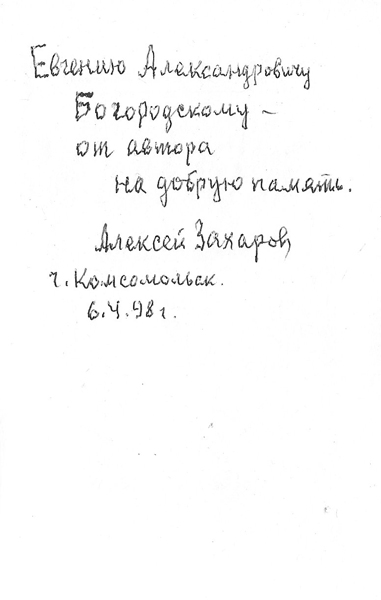 Евгению Александровичу
Богородскому –
от автора
на добрую память.
Алексей Захаров
г. Комсомольск.
6.4.98 г.